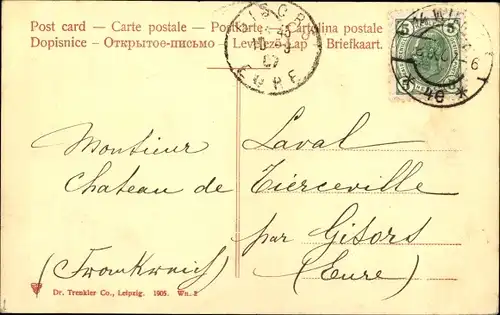 Post card — Carte postale — Postkarte — Cartolina postale
Dopisnice — Открытое-письмо — Levelező-Lap — Briefkaart.
GISORS
EURE
5 5
* 46 *
Monsieur Laval
Chateau de Tierceville
par Gisors
(Frankreich) (Eure)
Dr. Trenkler Co., Leipzig. 1905. Wn. 2